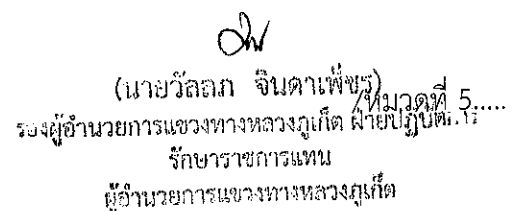 (นายวัลลภ จินดาเพ็ชร)
/หมวดที่ 5.....
รองผู้อำนวยการแขวงทางหลวงภูเก็ต ฝ่ายปฏิบัติการ
รักษาราชการแทน
ผู้อำนวยการแขวงทางหลวงภูเก็ต